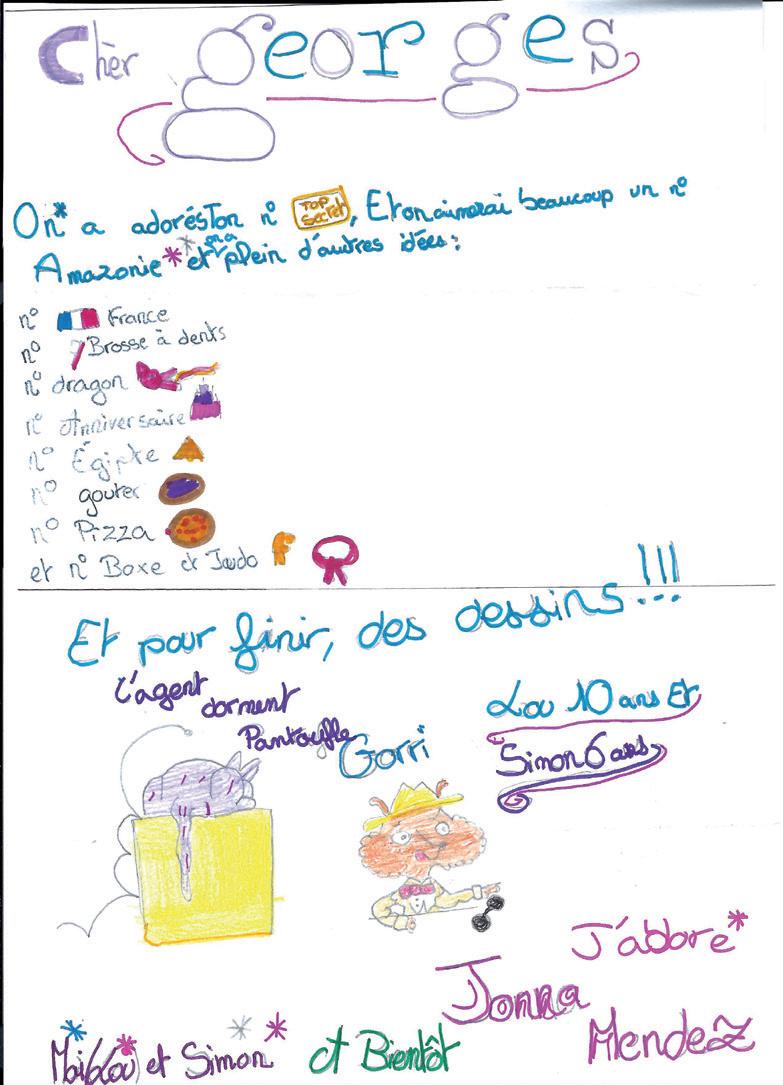 Chèr georges
On* a adorés Ton n° TOP SECRET, Et on aimerai beaucoup un n°
Amazonie** et on a plein d'autres idées :
n° France
n° Brosse à dents
n° dragon
n° Anniversaire
n° Égipte
n° gouter
n° Pizza
et n° Boxe et Judo
Et pour finir, des dessins !!!
L'agent
dorment
Pantoufle
Gorri
Lou 10 ans Et
Simon 6 ans
J'adore*
Jonna
Mendez
* * * *
Moi Lou et Simon et Bientôt